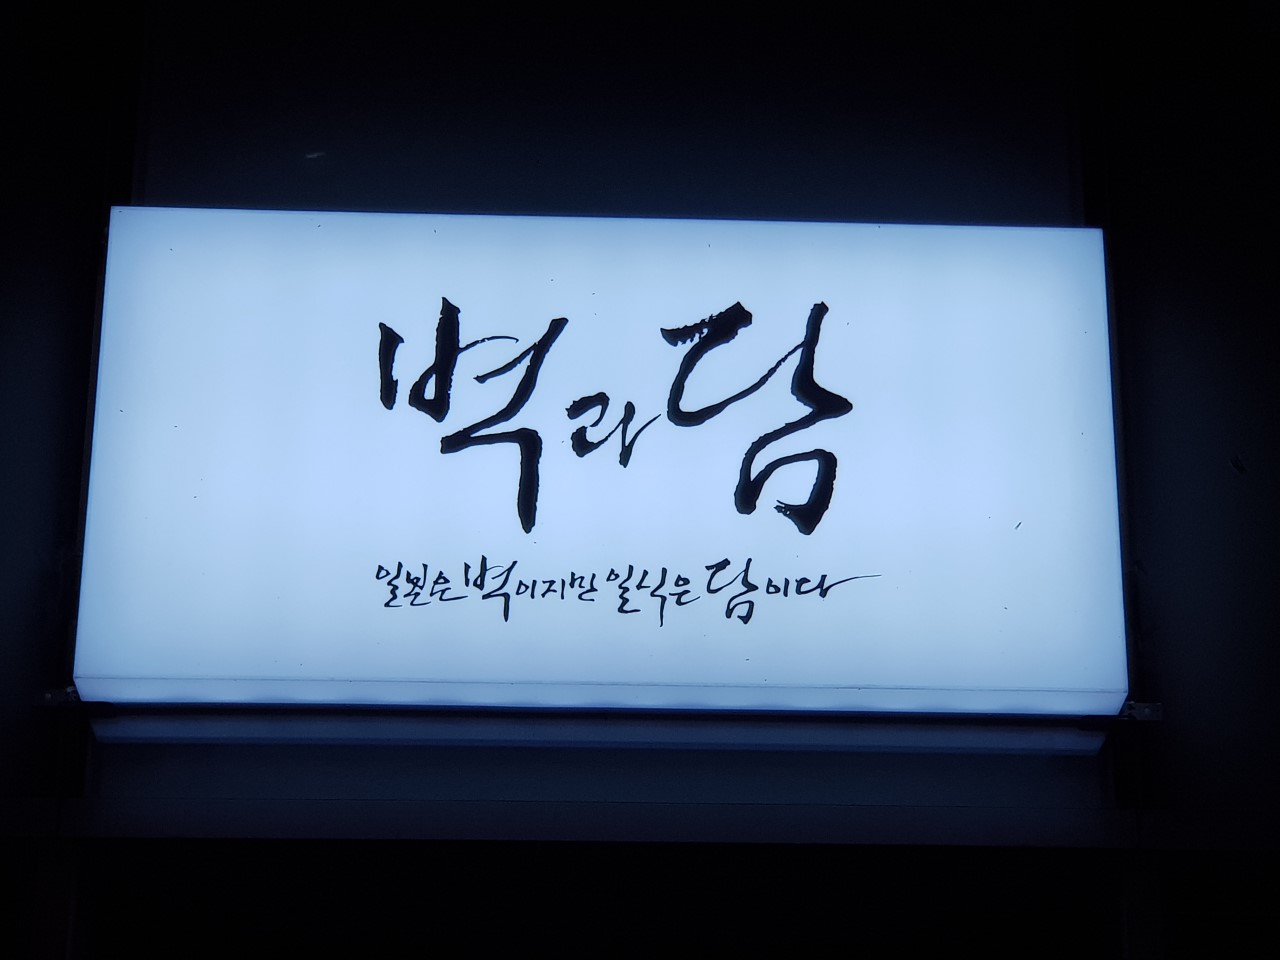 벽과담
일본은 벽이지만 일식은 담이다